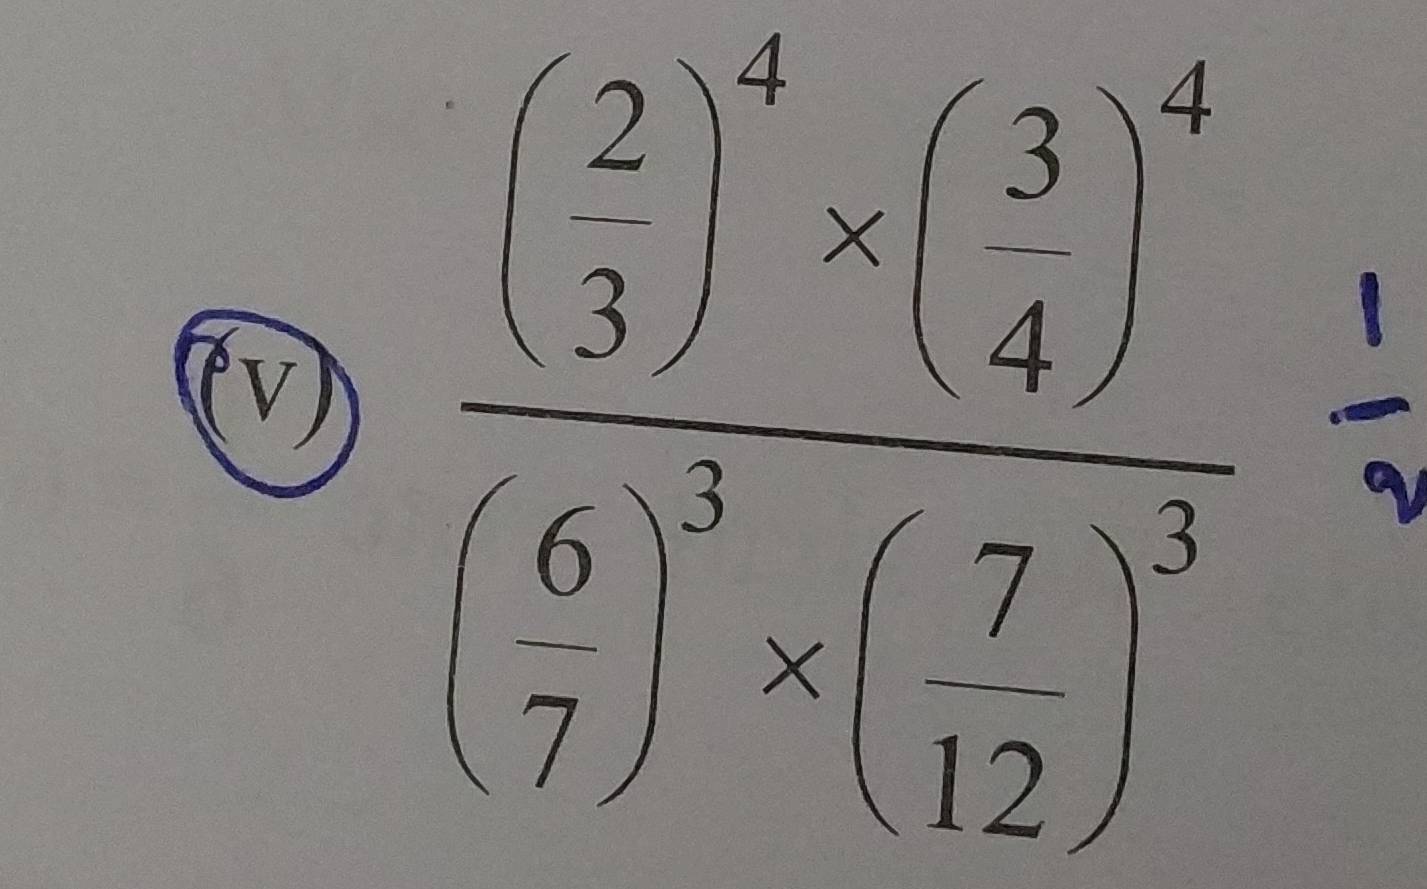 (v) \frac{\left(\frac{2}{3}\right)^4 \times \left(\frac{3}{4}\right)^4}{\left(\frac{6}{7}\right)^3 \times \left(\frac{7}{12}\right)^3} \frac{1}{2}